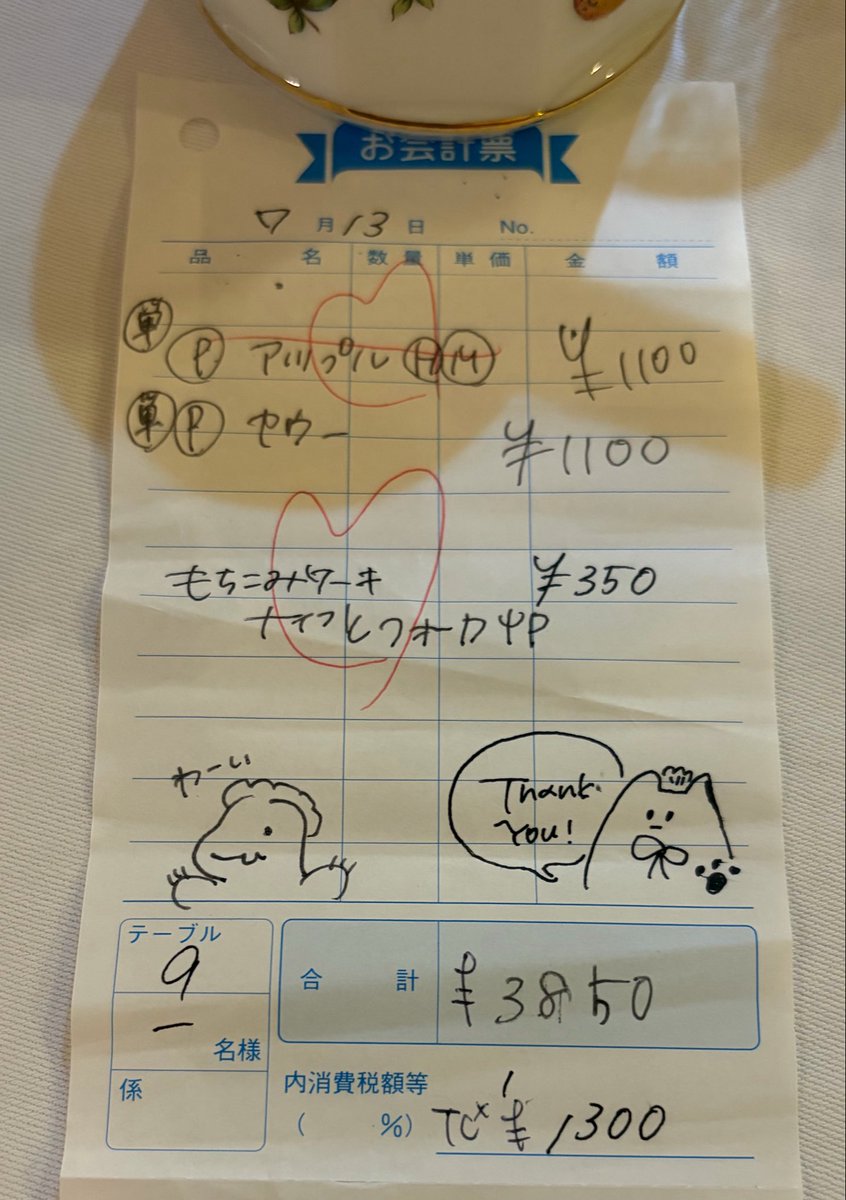 お会計票
7月13日 No.
品名 数量 単価 金額
単 P アップル H M ¥1100
単 P セウー ¥1100
¥350
ナイフとフォーク
わーい
Thank
You!
テーブル
9
一 名様
係
合計 ¥3850
内消費税額等
( %) TC×1 ¥1300